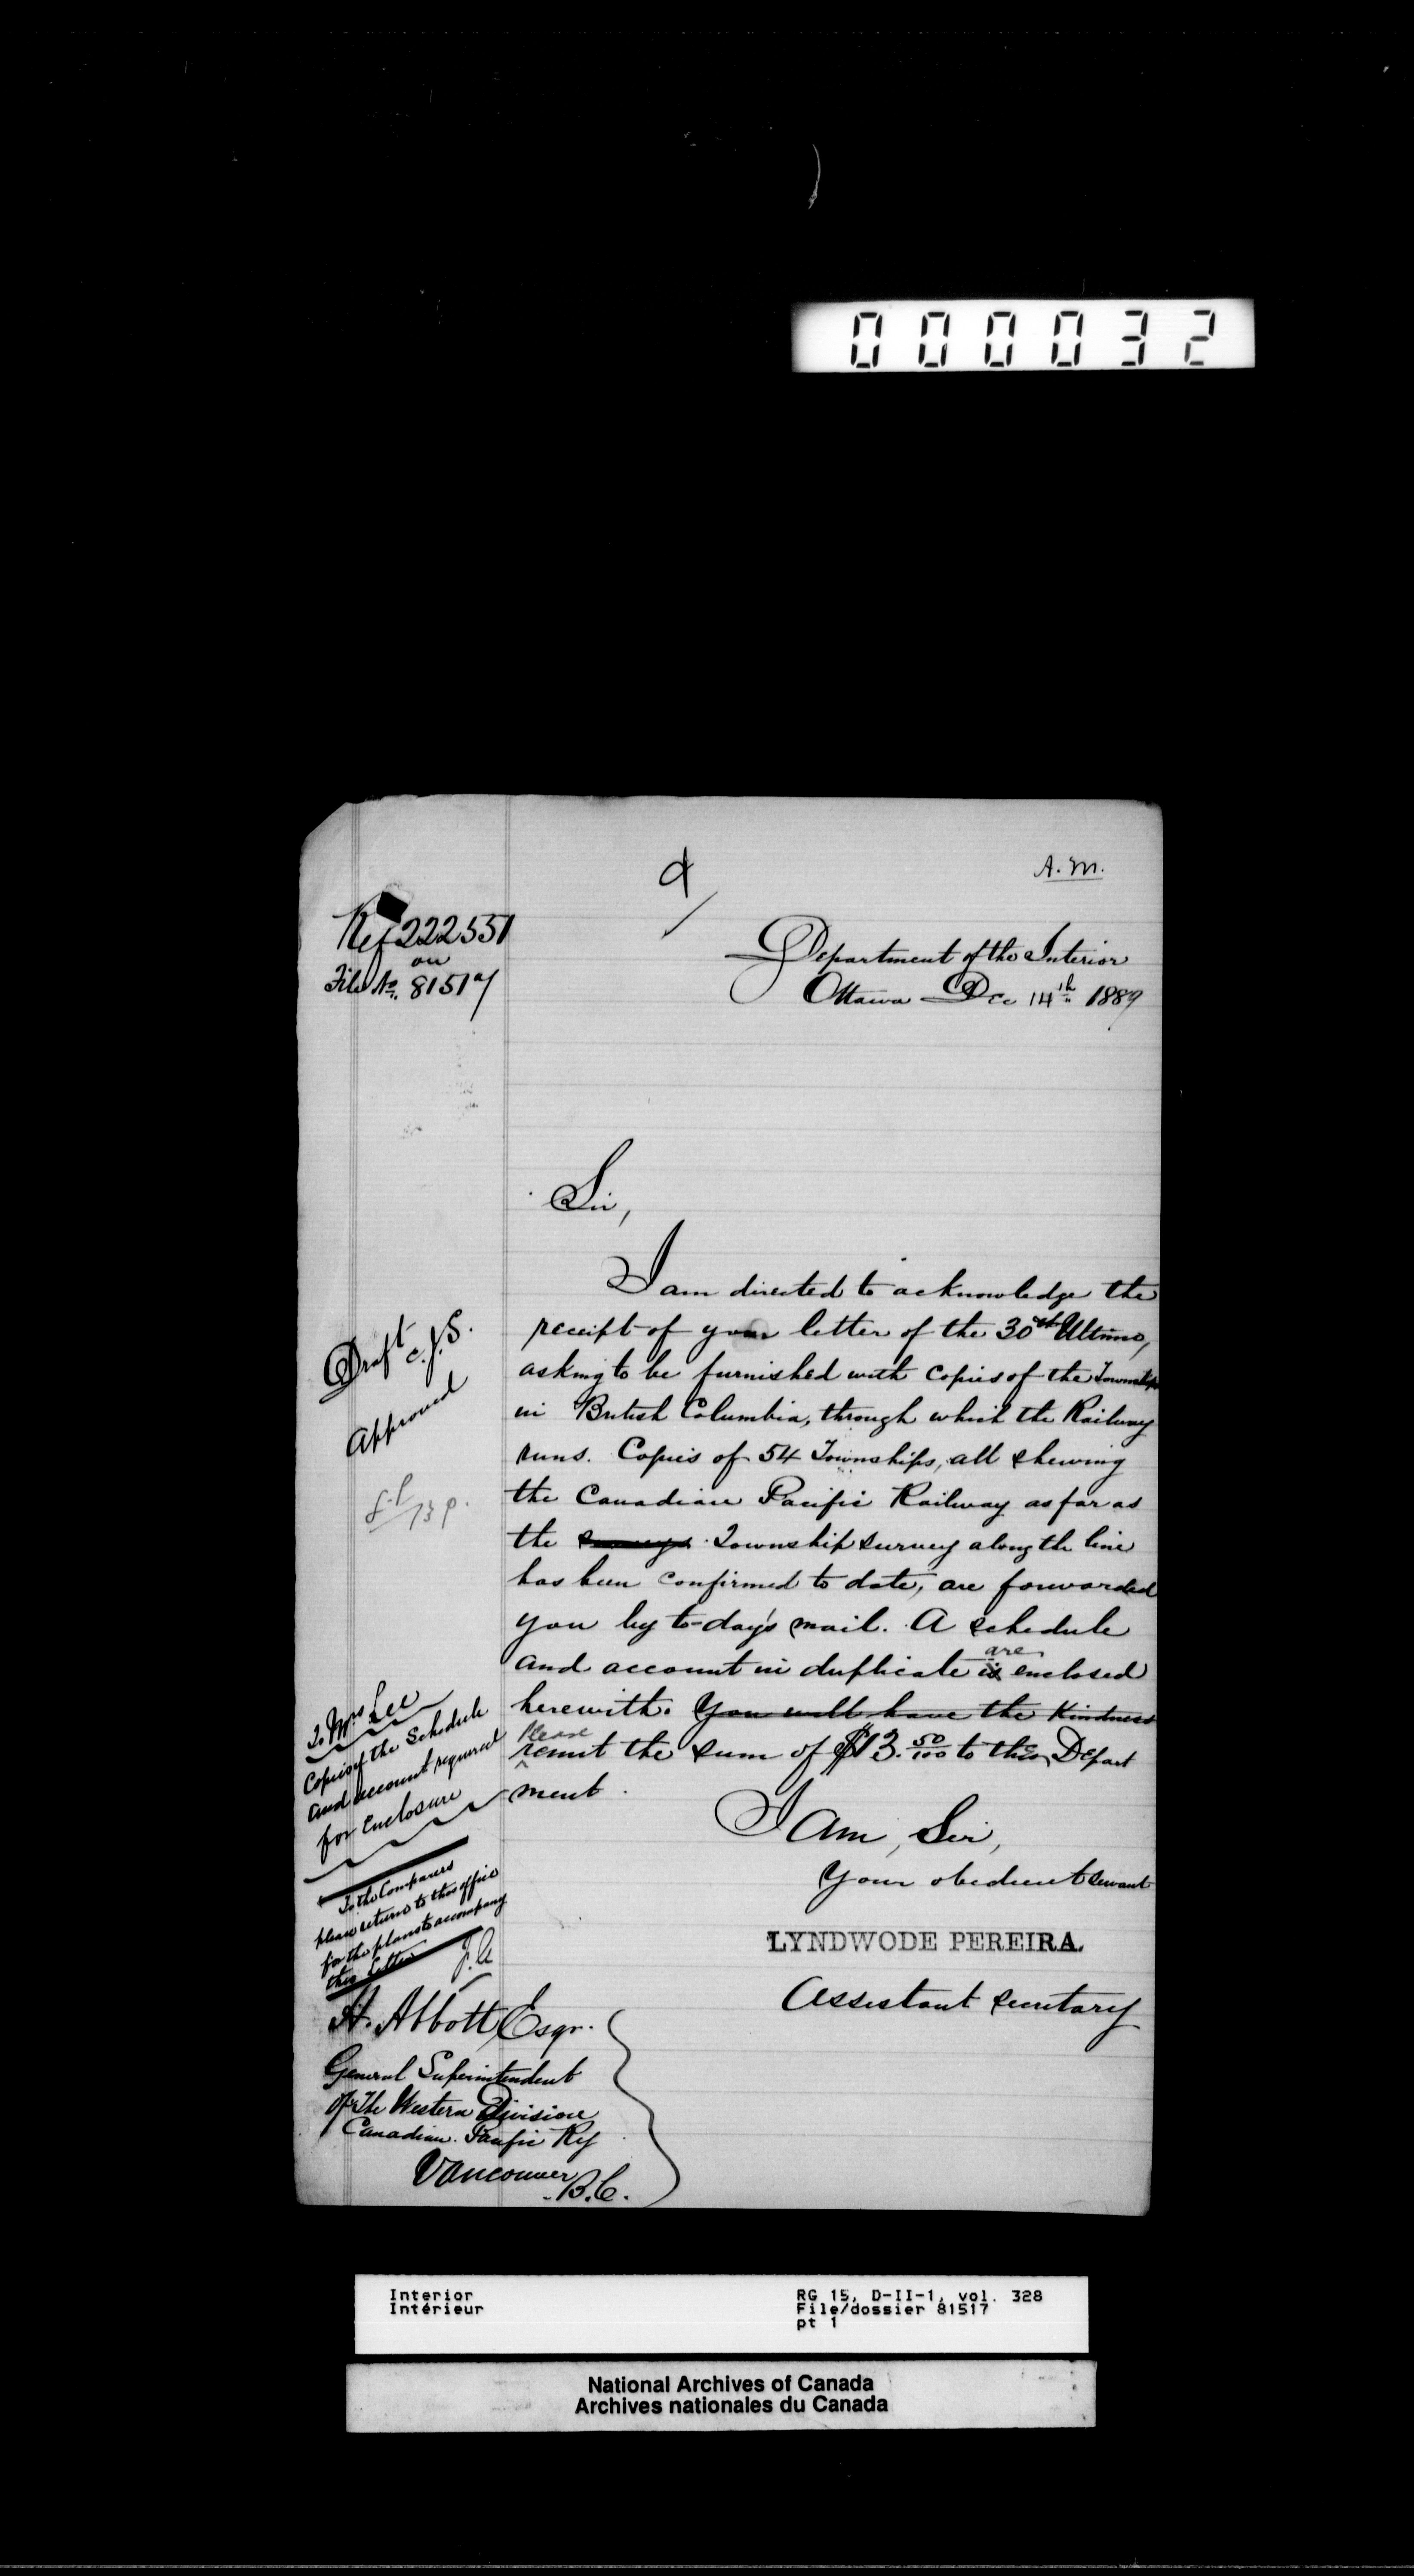 000032
A.M.
Ref 222551
on
File No. 81517
Department of the Interior
Ottawa Dec 14th 1889
Sir,
I am directed to acknowledge the
receipt of your letter of the 30th Ultimo,
asking to be furnished with copies of the Townships
in British Columbia, through which the Railway
runs. Copies of 54 Townships, all shewing
the Canadian Pacific Railway as far as
the surveys Township survey along the line
has been confirmed to date, are forwarded
you by to-day's mail. A schedule
and account in duplicate is are enclosed
herewith. You will have the kindness
Please remit the sum of $13.50/100 to this Depart
ment.
I am, Sir,
Your obedient servant
LYNDWODE PEREIRA.
Assistant Secretary
Draft C.J.S.
Approved
To Mrs Lee
Copies of the Schedule
and account required
for Enclosure
To the Comparers
please return to this office
for the plans to accompany
this letter
H. Abbott, Esqr.
General Superintendent
of The Western Division
Canadian Pacific Ry
Vancouver
B.C.
Interior
Intérieur
RG 15, D-II-1, vol. 328
File/dossier 81517
pt 1
National Archives of Canada
Archives nationales du Canada